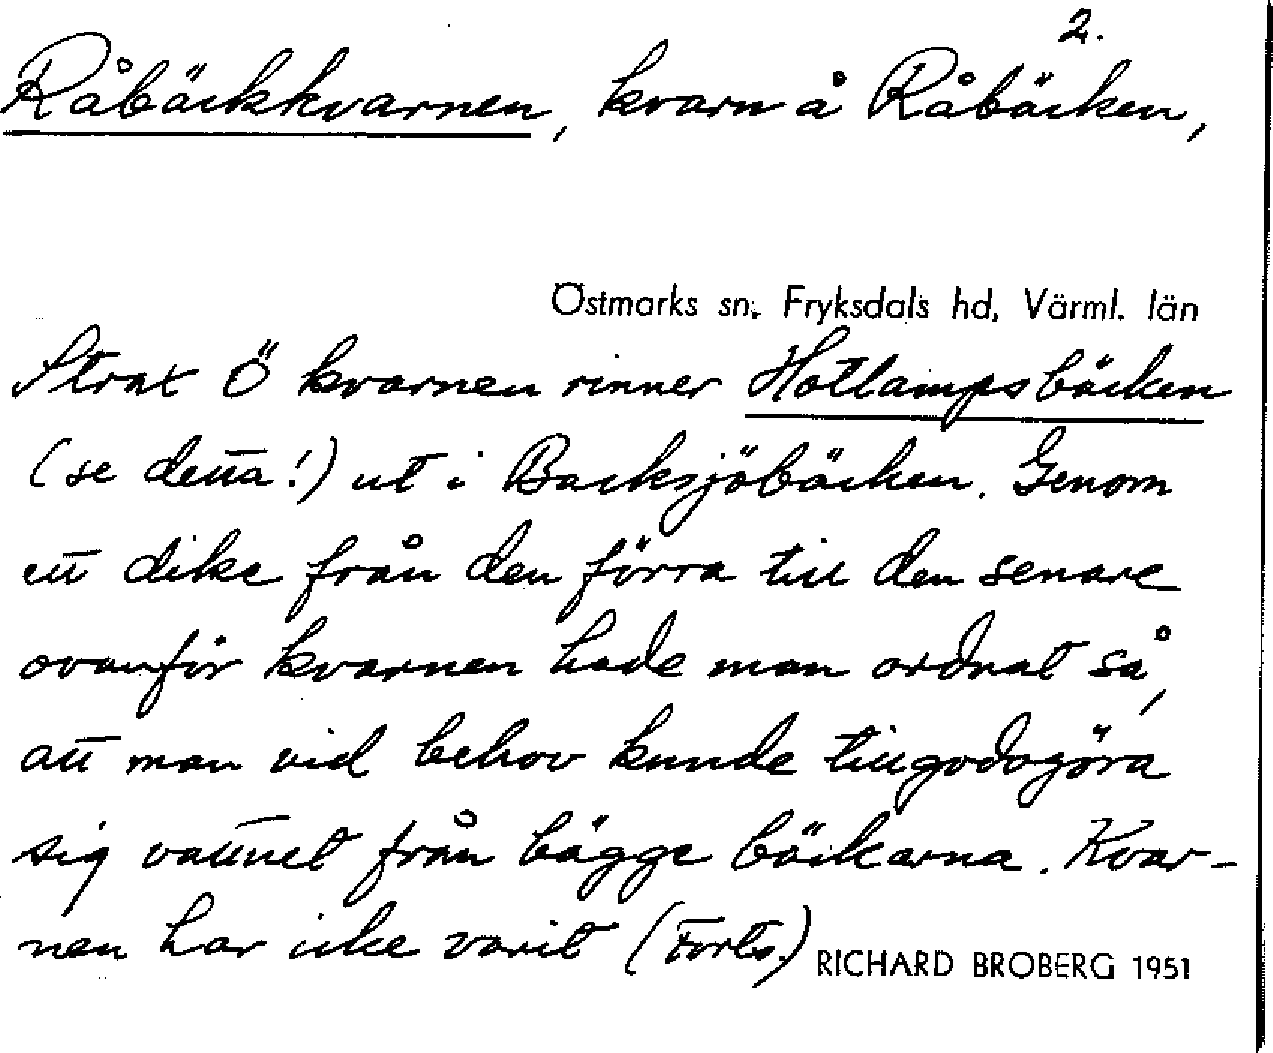 2.
Råbäckkvarnen, kvarn å Råbäcken,
Östmarks sn, Fryksdals hd, Värml. län
Strax Ö kvarnen rinner Hottampsbäcken
(se detta!) ut i Backsjöbäcken. Genom
ett dike från den förra till den senare
ovanför kvarnen hade man ordnat så,
att man vid behov kunde tillgodogöra
sig vattnet från bägge bäckarna. Kvar-
nen har icke varit (Forts.)
RICHARD BROBERG 1951